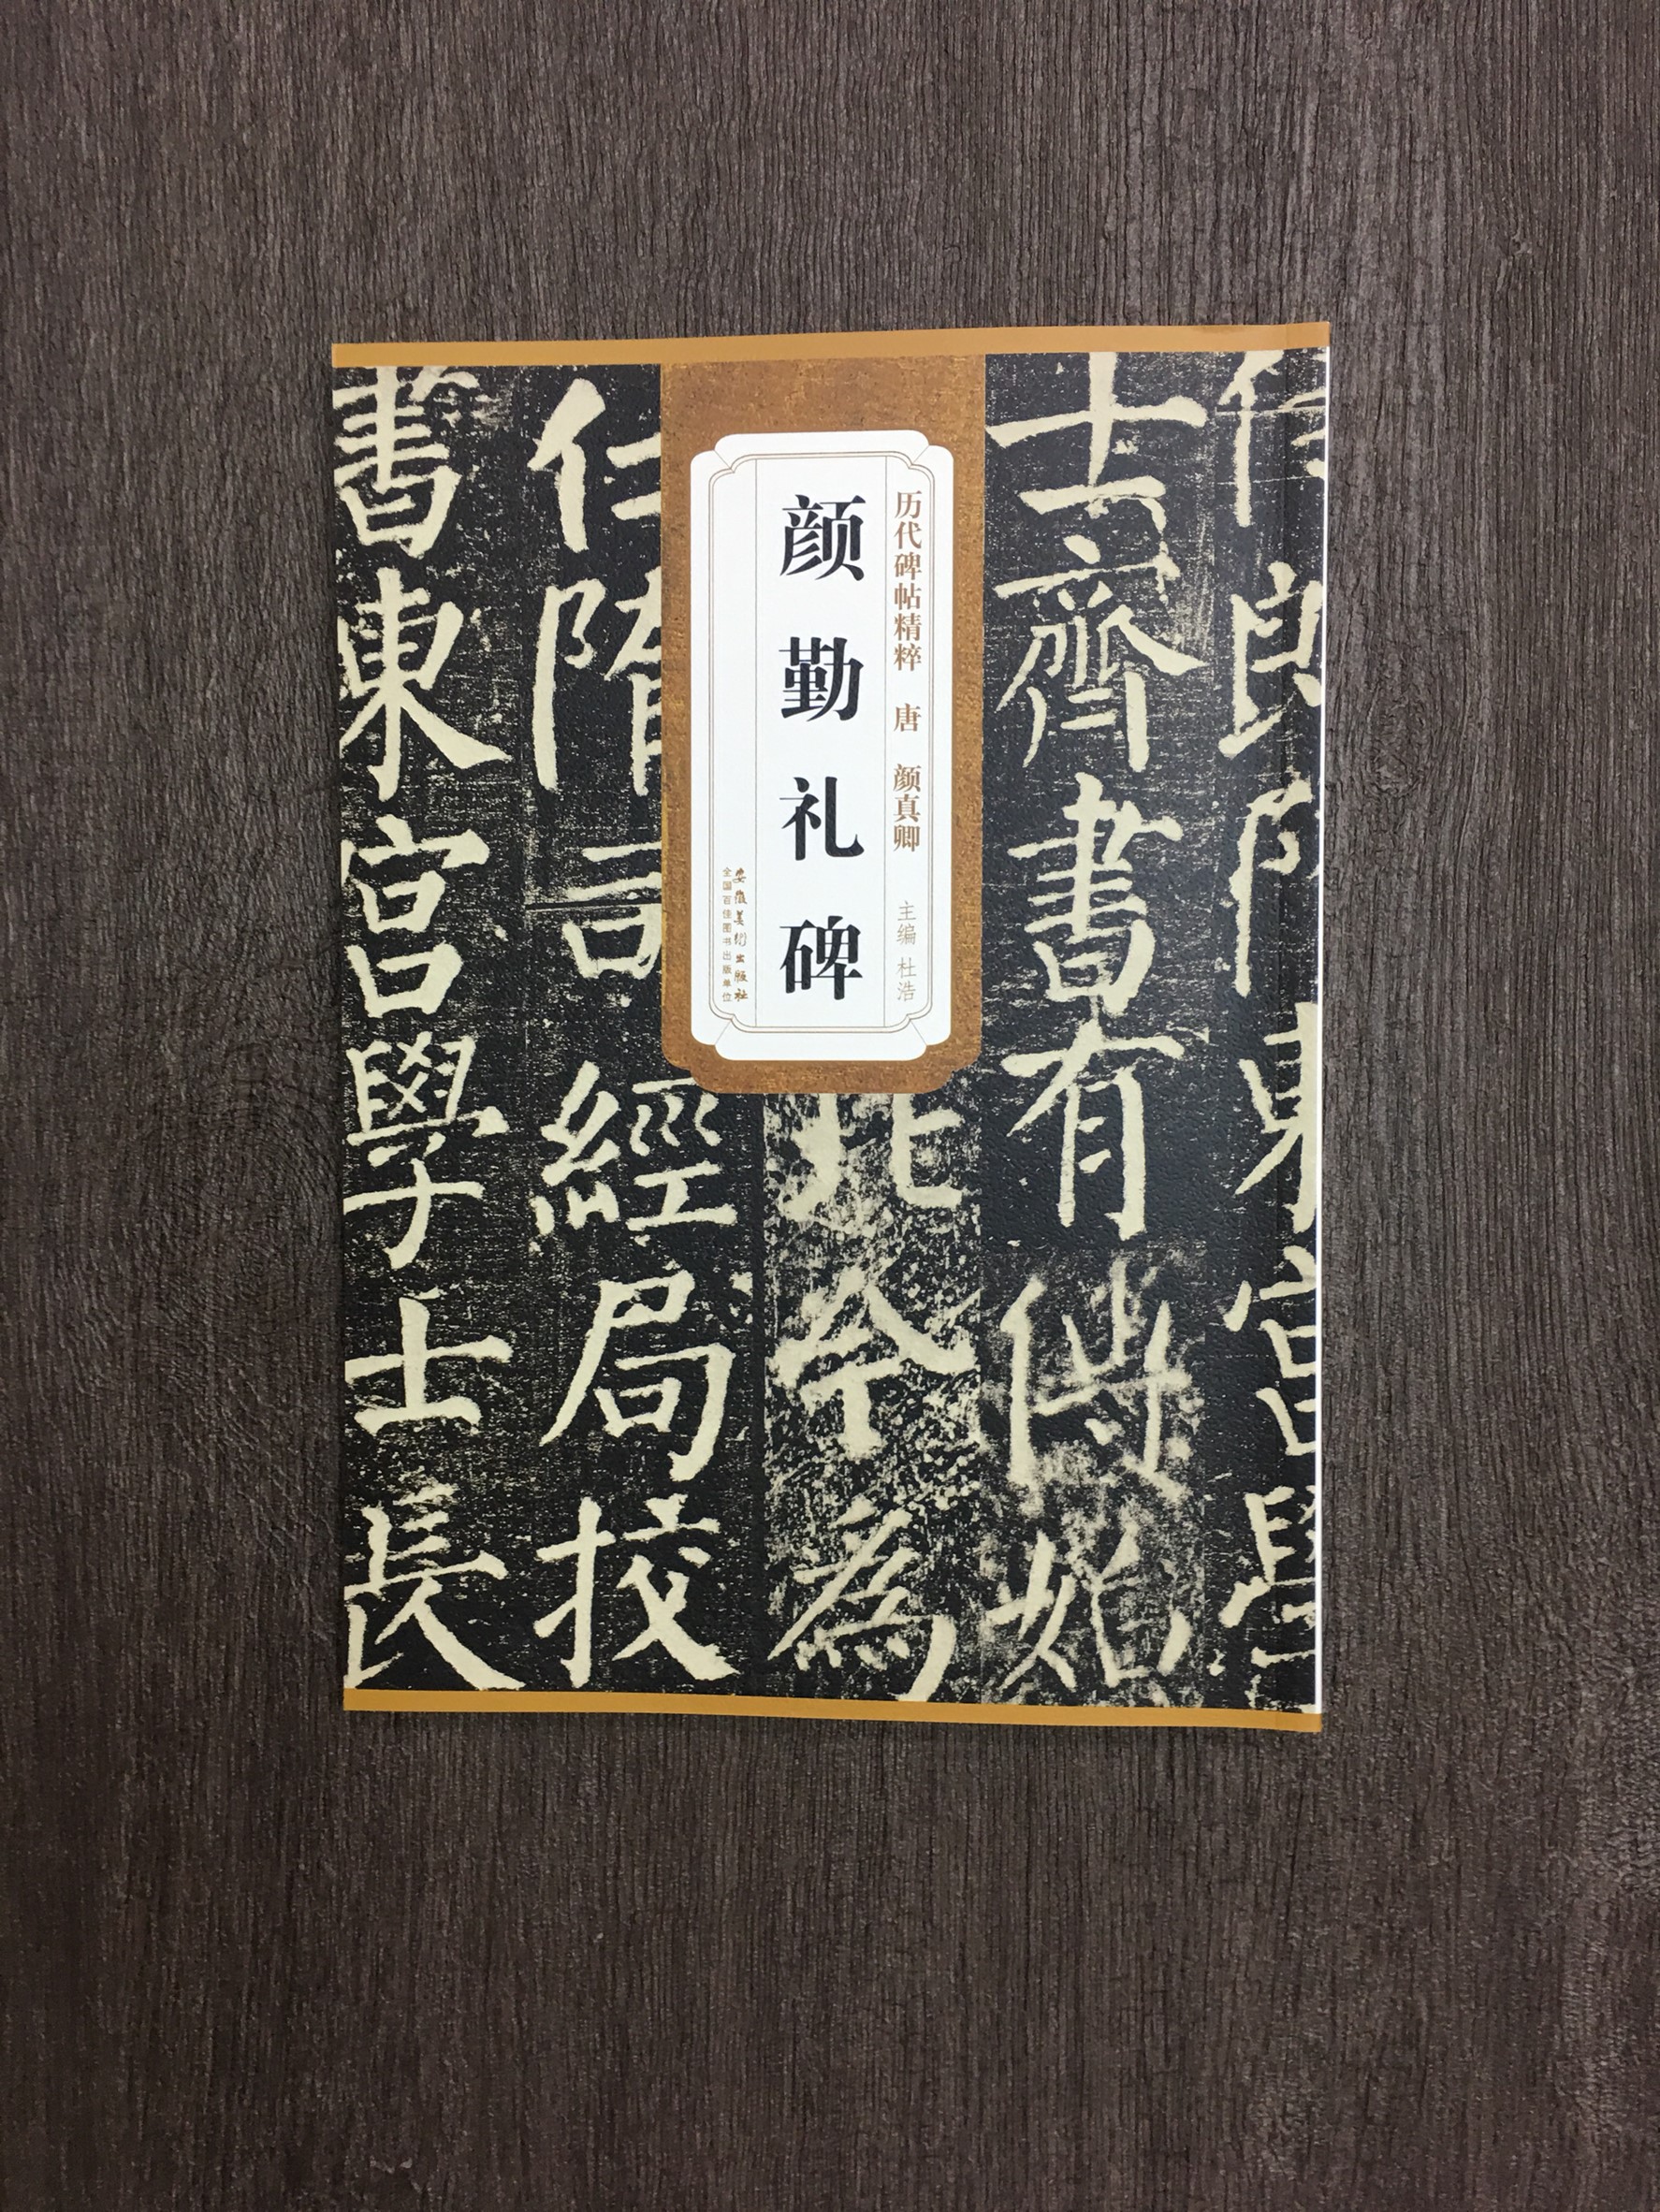 历代碑帖精粹 唐 颜真卿 主编 杜浩
颜勤礼碑
安徽美术出版社
全国百佳图书出版单位
士齊書有
北令為
仁隋司經局校
書東宮學士長